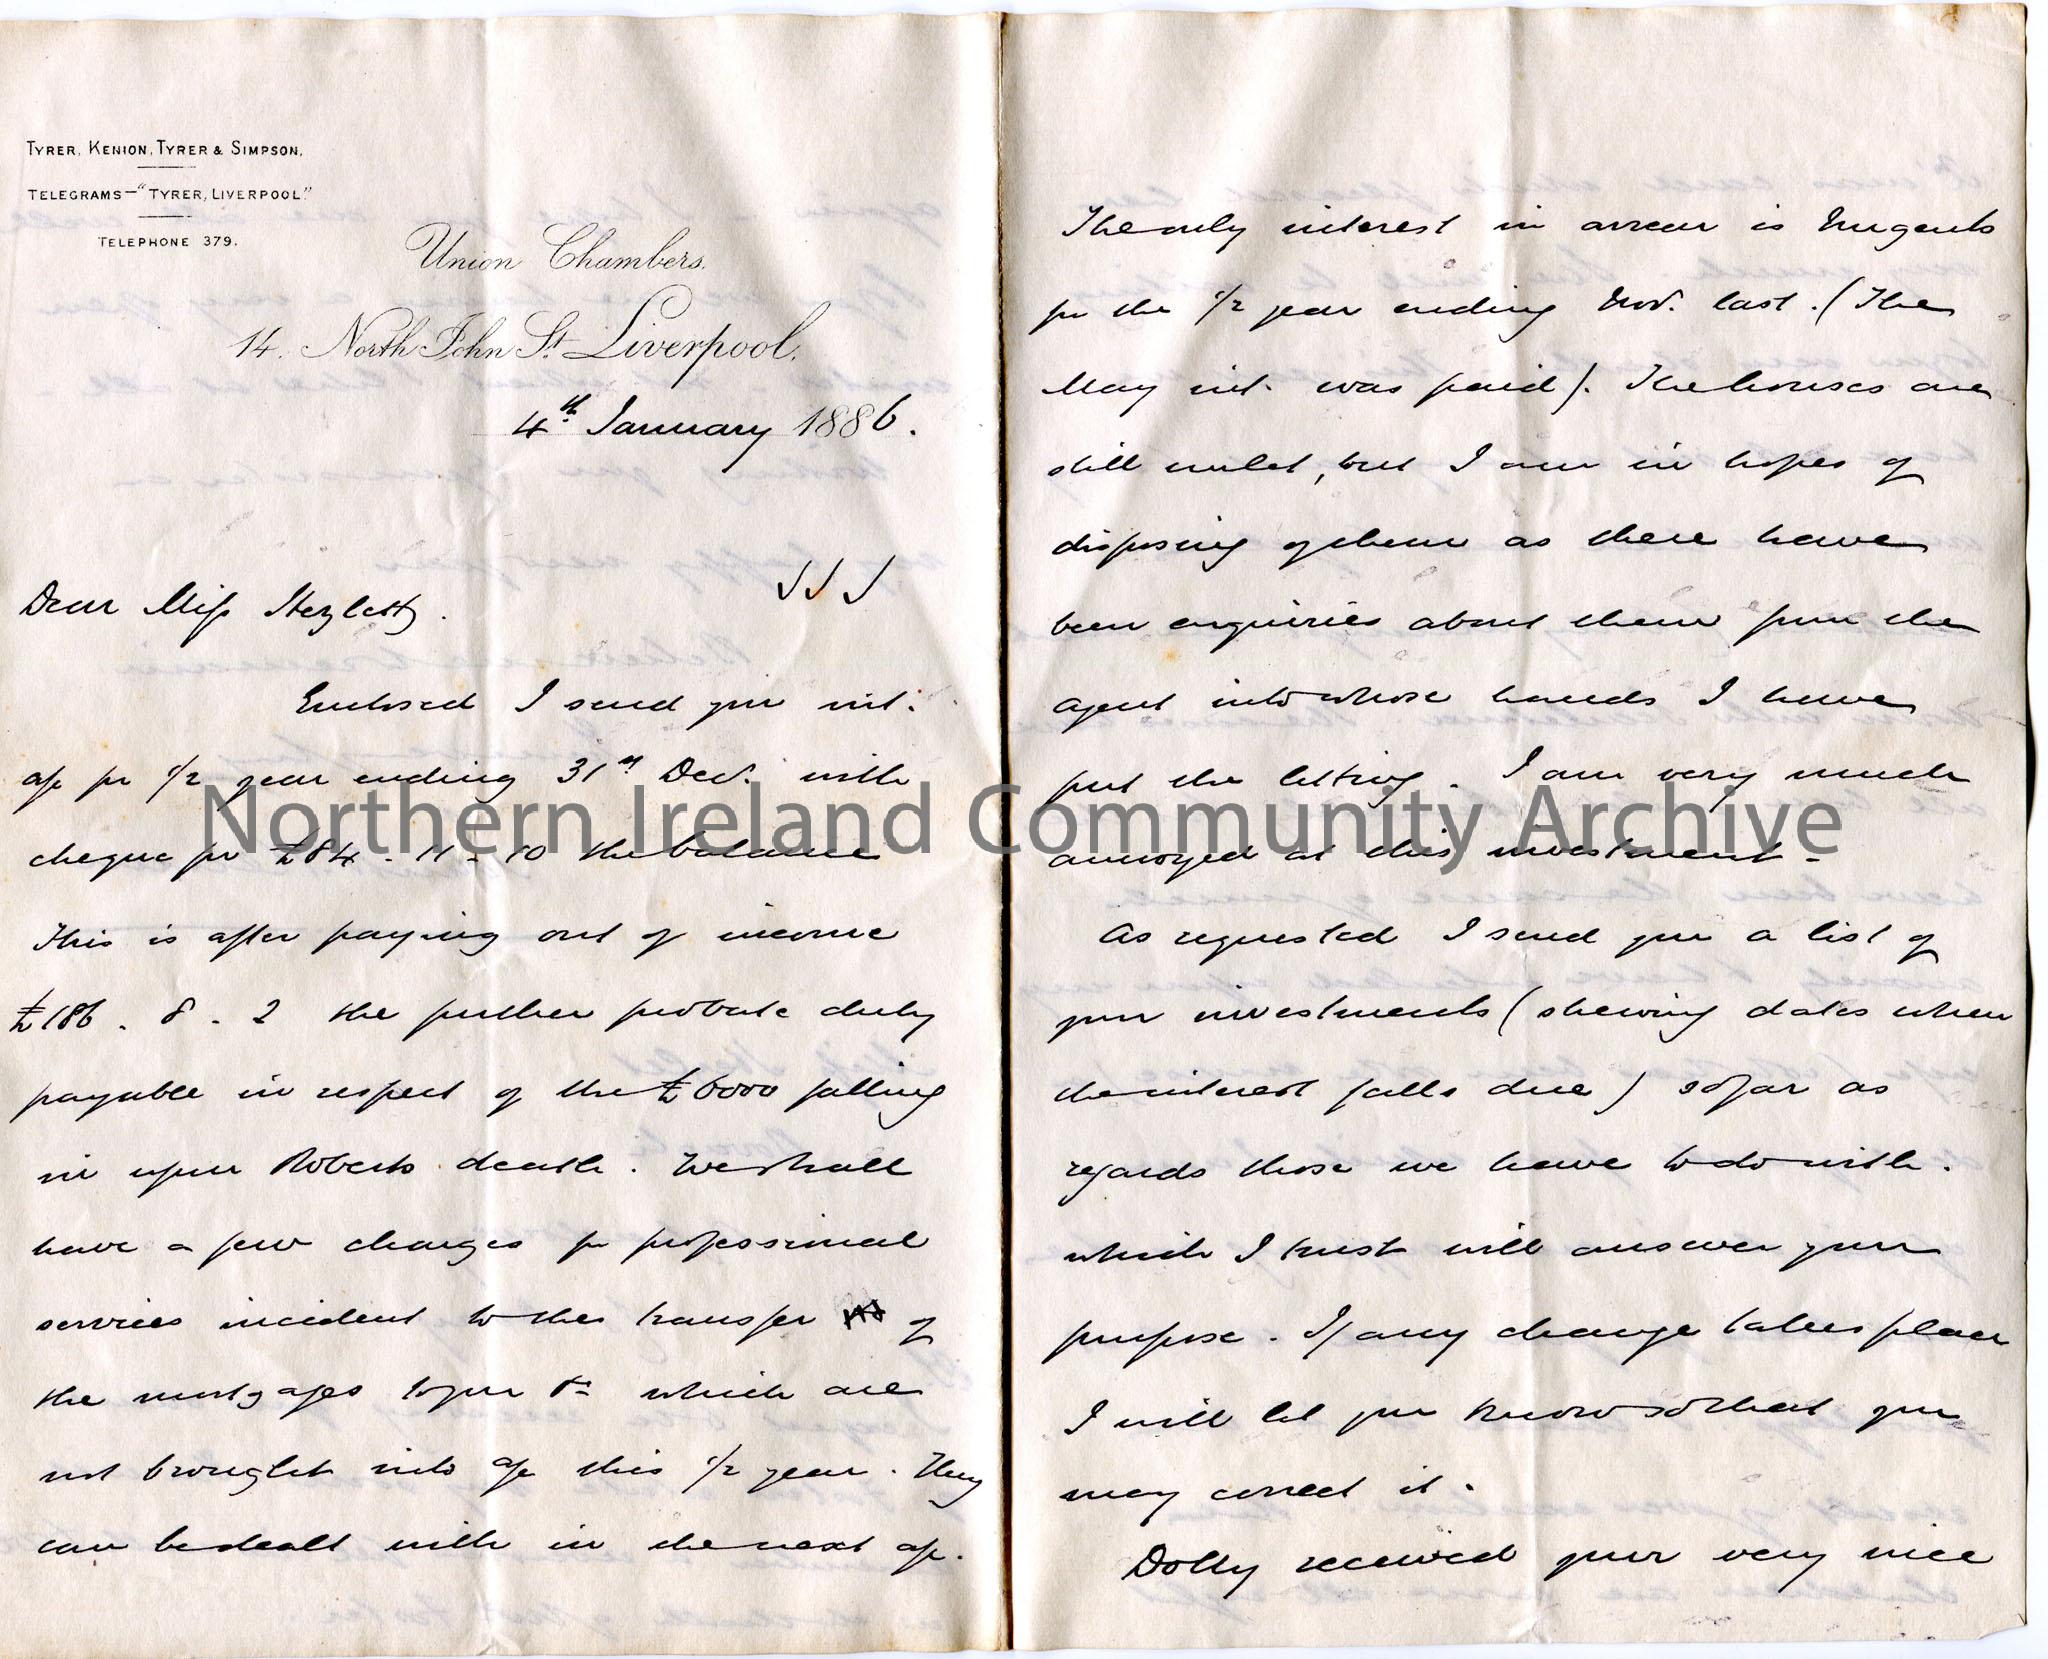 TYRER, KENION, TYRER & SIMPSON.
TELEGRAMS—"TYRER, LIVERPOOL."
TELEPHONE 379.
Union Chambers.
14. North John St. Liverpool,
4th January 1886.
Dear Miss Hezlett,
Enclosed I send you int.
a/c for 1/2 year ending 31st Decr. with
cheque for £84 - 11 - 10 the balance
This is after paying out of income
£186 . 8 . 2 the further probate duty
payable in respect of the £6000 falling
in upon Roberts death. We shall
have a few charges for professional
services incident to the transfer of
the mortgages to you &c which are
not brought into a/c this 1/2 year. They
can be dealt with in the next a/c.
The only interest in arrear is Nugents
for the 1/2 year ending Novr. last. (The
May int. was paid). The houses are
still unlet, but I am in hopes of
disposing of them as there have
been enquiries about them from the
agent into whose hands I have
put the letting. I am very much
annoyed at this investment -
As requested I send you a list of
your investments (shewing dates when
the interest falls due) so far as
regards those we have to do with.
which I trust will answer your
purpose. If any change takes place
I will let you know so that you
may correct it.
Dolly received your very nice
Northern Ireland Community Archive